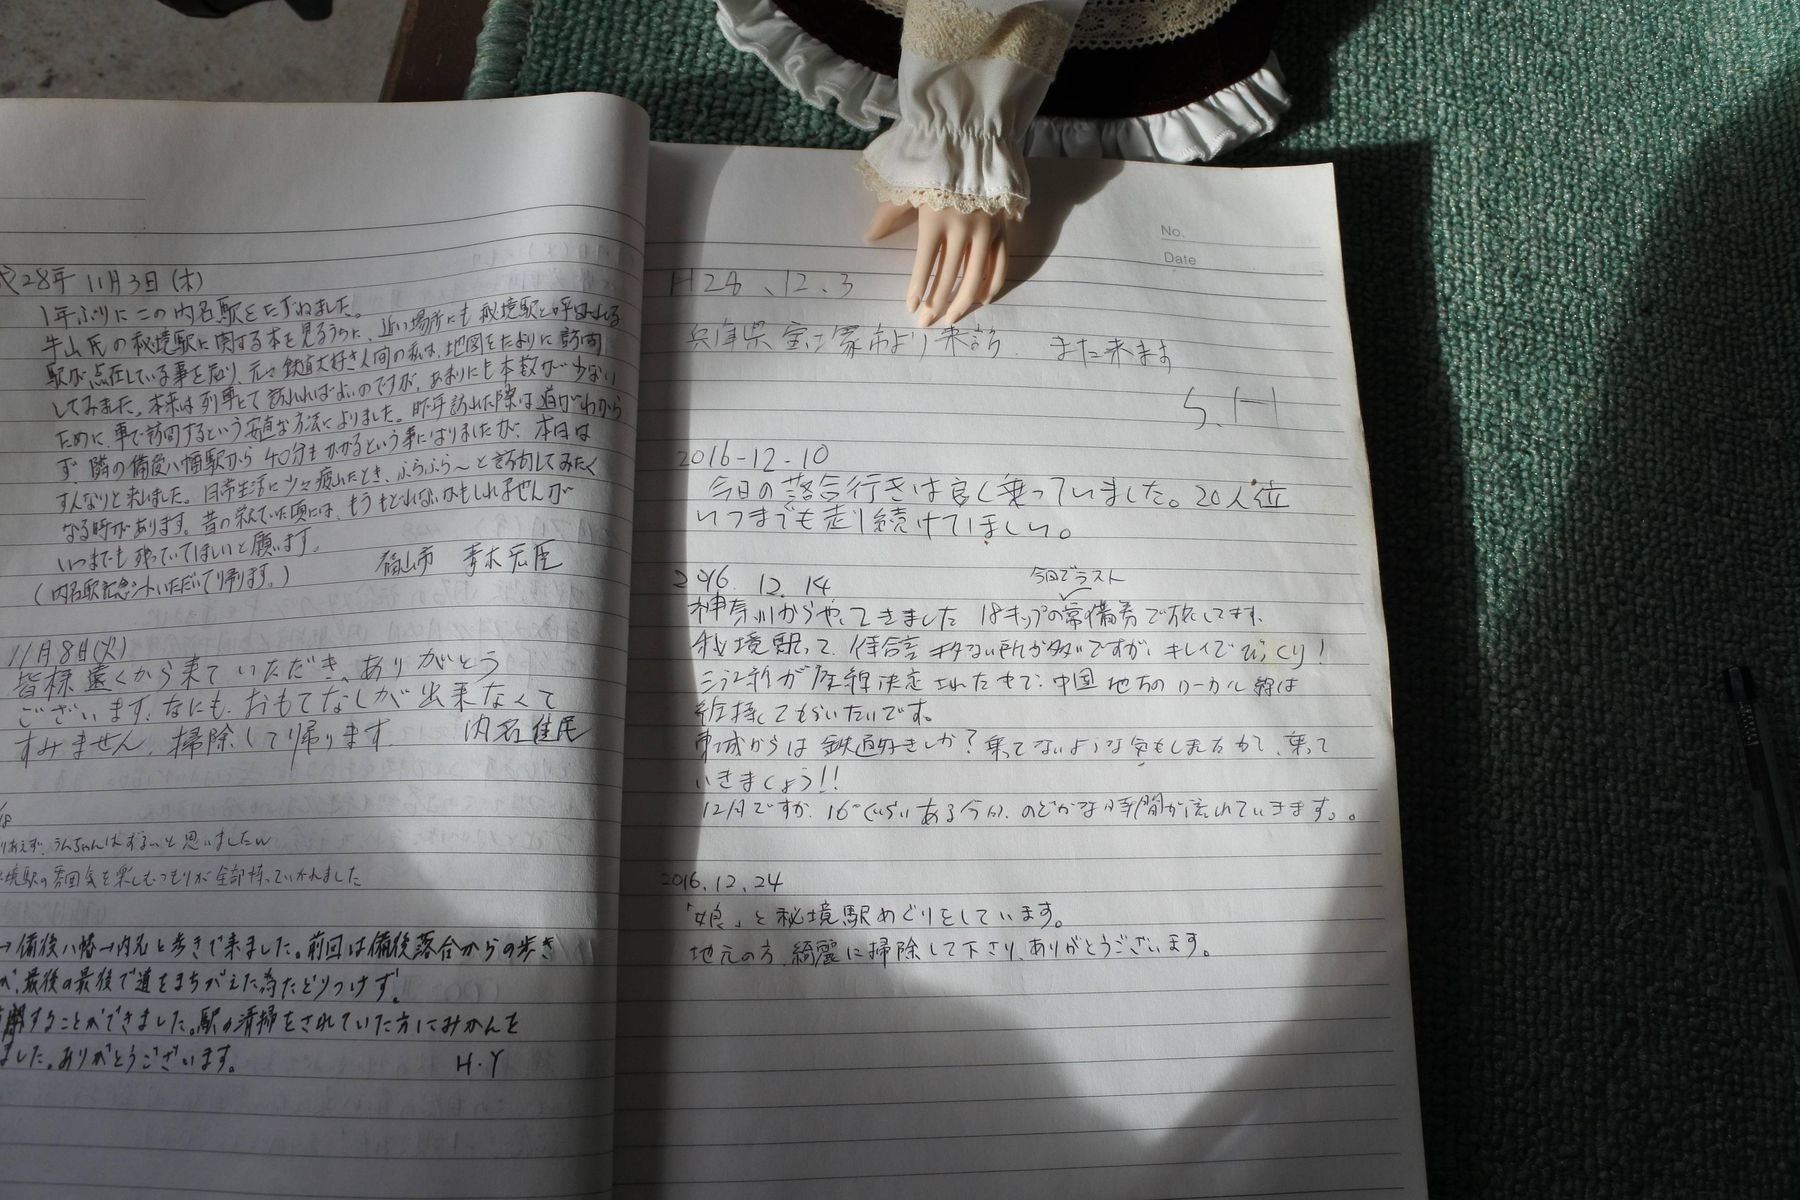 28年 11月3日(木)
1年ぶりにこの内名駅をたずねました。
牛山氏の秘境駅に関する本を見るうちに、近い場所にも秘境駅と呼ばれる
駅が点在している事を知り、元々鉄道大好き人間の私は、地図をたよりに訪問
してみました。本来は列車とて訪れればよいのですが、あまりにも本数が少ない
ために、車で訪問するという安直な方法によりました。昨年訪れた際は道がわから
ず、隣の備後八幡駅から40分もかかるという事になりましたが、本日は
すんなりと来れました。日常生活に少々疲れたとき、ふらふら〜と訪問してみたく
なる時があります。昔の栄えていた頃には、もうもどれないかもしれませんが
いつまでも残っていてほしいと願います。
(内名駅記念 いただいて帰ります。) 福山市 青木
11月8日(火)
皆様遠くから来ていただき、ありがとう
ございます。なにも、おもてなしが出来なくて
すみません。掃除して帰ります。 内名住民
りあえず、うんちゃんはずるいと思いましたw
境駅の雰囲気を楽しむつもりが全部持っていかれました
→備後八幡→内名と歩きで来ました。前回は備後落合からの歩き
が、最後の最後で道をまちがえた為たどりつけず。
することができました。駅の清掃をされていた方にみかんを
ました。ありがとうございます。
H.Y
No.
Date
H28、12、3
兵庫県宝塚市より来訪. また来ます
S.H
2016-12-10
今日の落合行きは良く乗っていました。20人位
いつまでも走り続けてほしい。
2016. 12. 14
今回でラスト
神奈川からやってきました 18キップの常備券で旅してます。
秘境駅って、待合室 キタない所が多いですが、キレイでびっくり!
三江線が廃線決定されたもで、中国地方のローカル線は
維持してもらいたいです。
東城からは鉄道好きしか?乗ってないような気もしまたがて、乗って
いきましょう!!
12月ですが、16℃ぐらいある今日、のどかな時間が流れていきます。。
2016.12.24
「娘」と秘境駅めぐりをしています。
地元の方、綺麗に掃除して下さり、ありがとうございます。